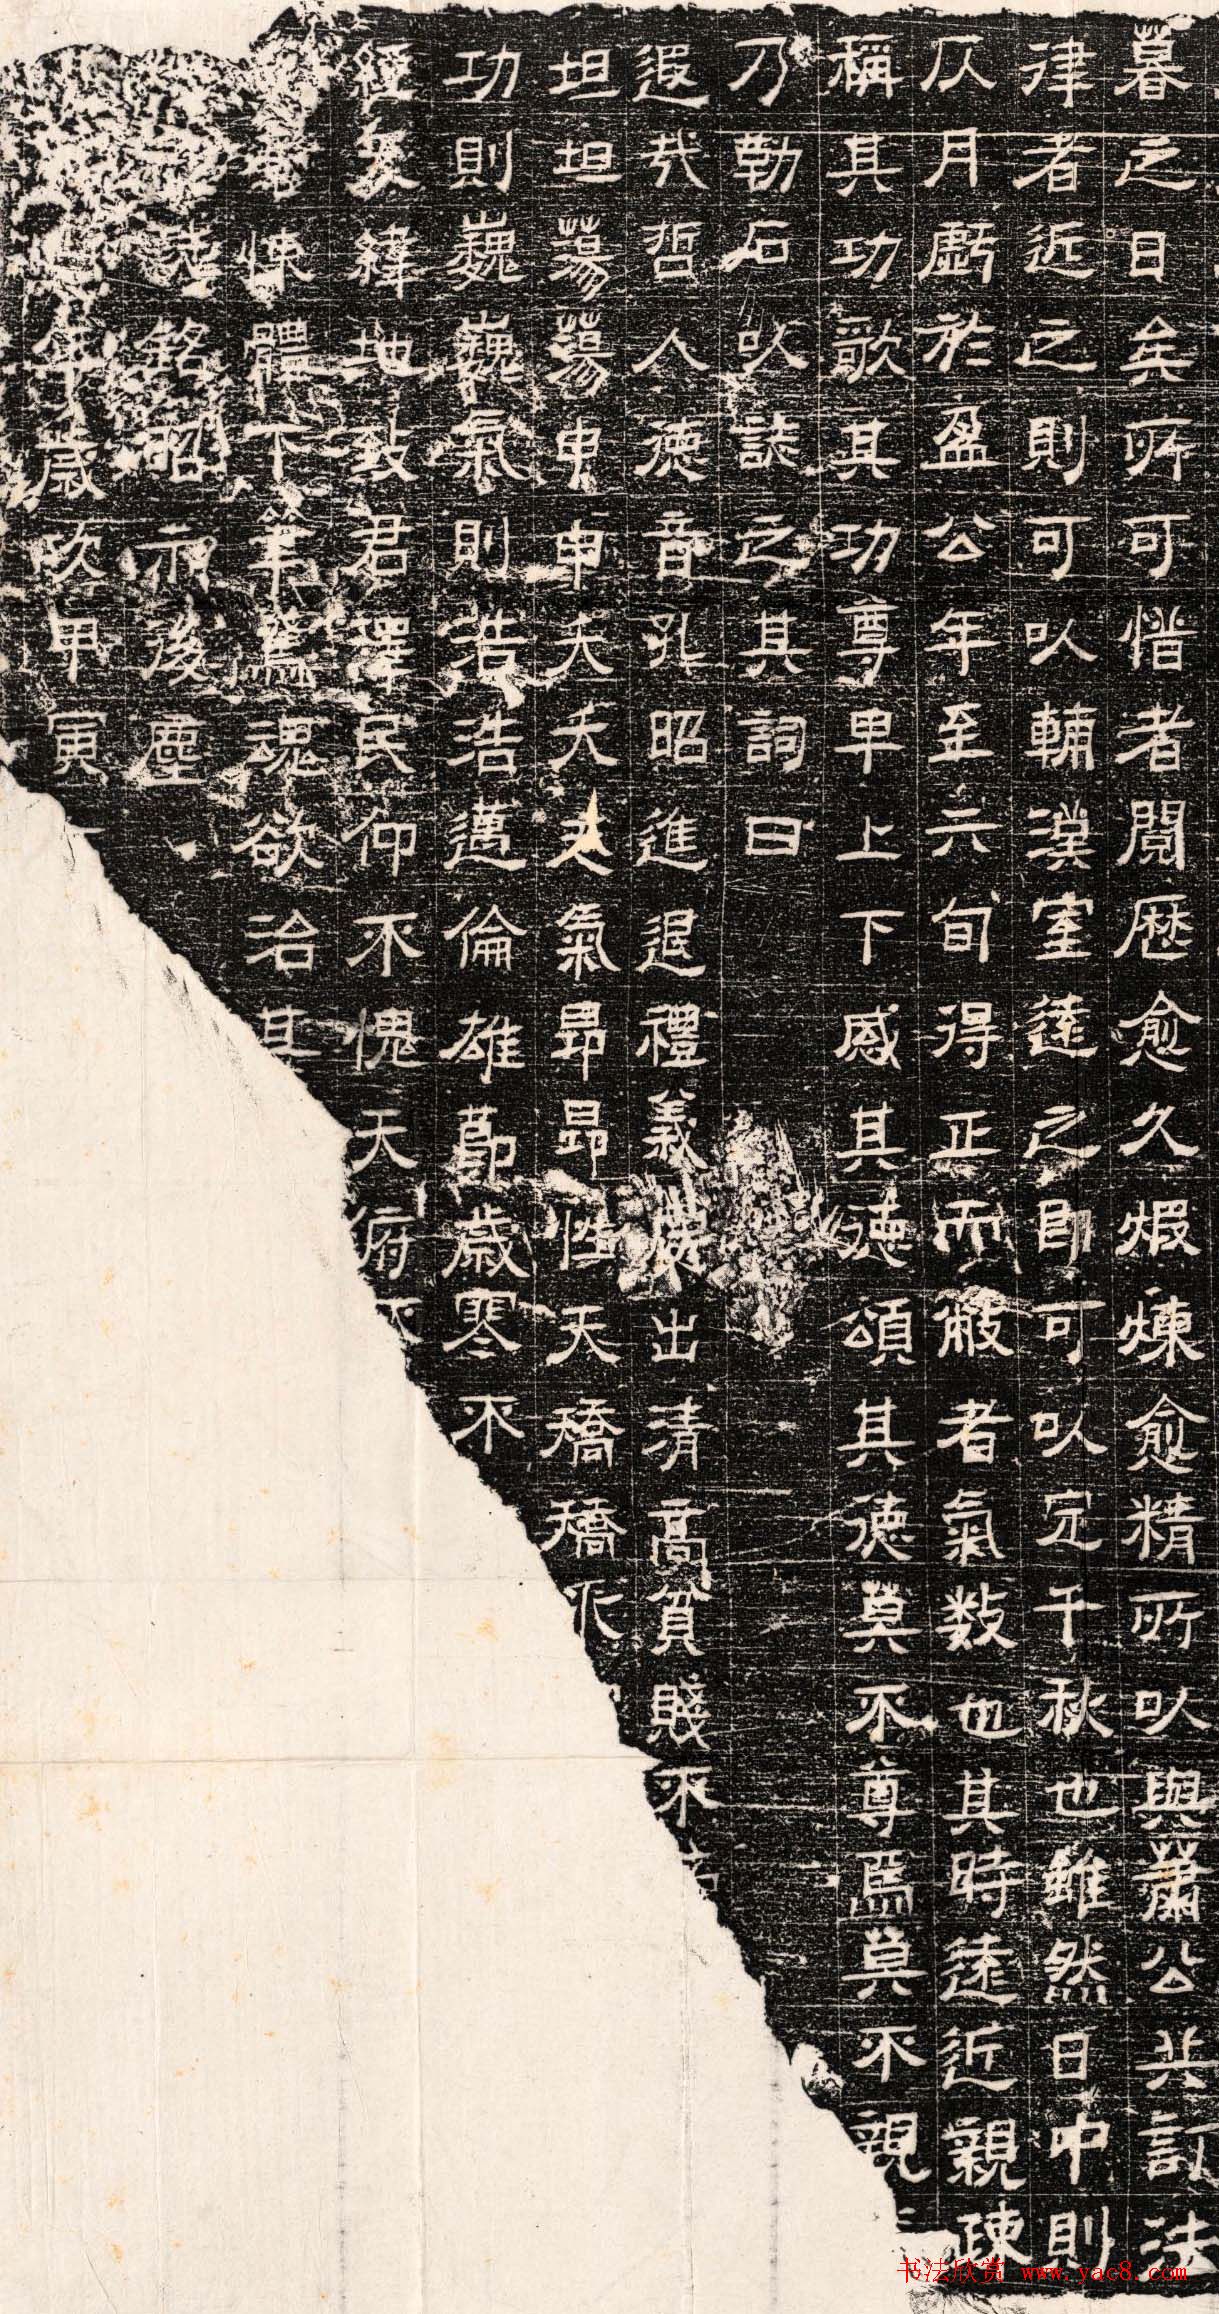 暮之日矣所可惜者閱歷愈久煆煉愈精所以與蕭公共訂法
律者近之則可以輔漢室遠之即可以定千秋也雖然日中則
仄月虧於盈公年至六旬得正而斃者氣数也其時遠近親疎
稱其功歌其功尊卑上下感其德頌其德莫不尊焉莫不親
乃勒石以誌之其詞曰
遐哉哲人德音孔昭進退禮義出清高貧賤不
坦坦蕩蕩申申夭夭夫氣昂昂性天矯矯
功則巍巍氣則浩浩邁倫雄節歲寒不
經緯地致君澤民仰不愧天府不
悚體下筆焉魂欲治其
誌銘昭示後塵
年歲次甲寅
书法欣赏 www.yac8.com